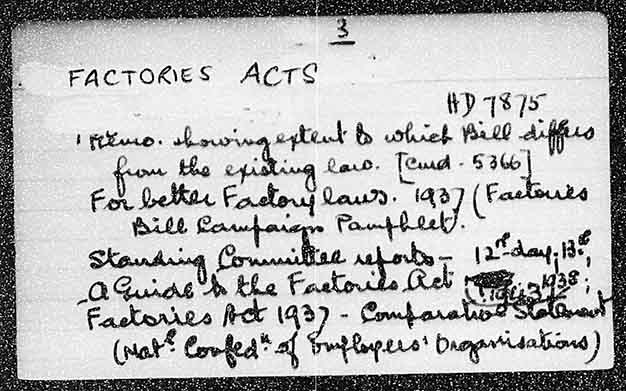 3
FACTORIES ACTS
HD 7875
Memo. showing extent to which Bill differs
from the existing law. [Cmd. 5366]
For better Factory laws. 1937 (Factories
Bill Campaign Pamphlet).
Standing Committee reports - 12th day; 13th;
A Guide to the Factories Act 1938;
Factories Act 1937 - Comparative Statement
(Natl Confedn of Employers' Organisations)